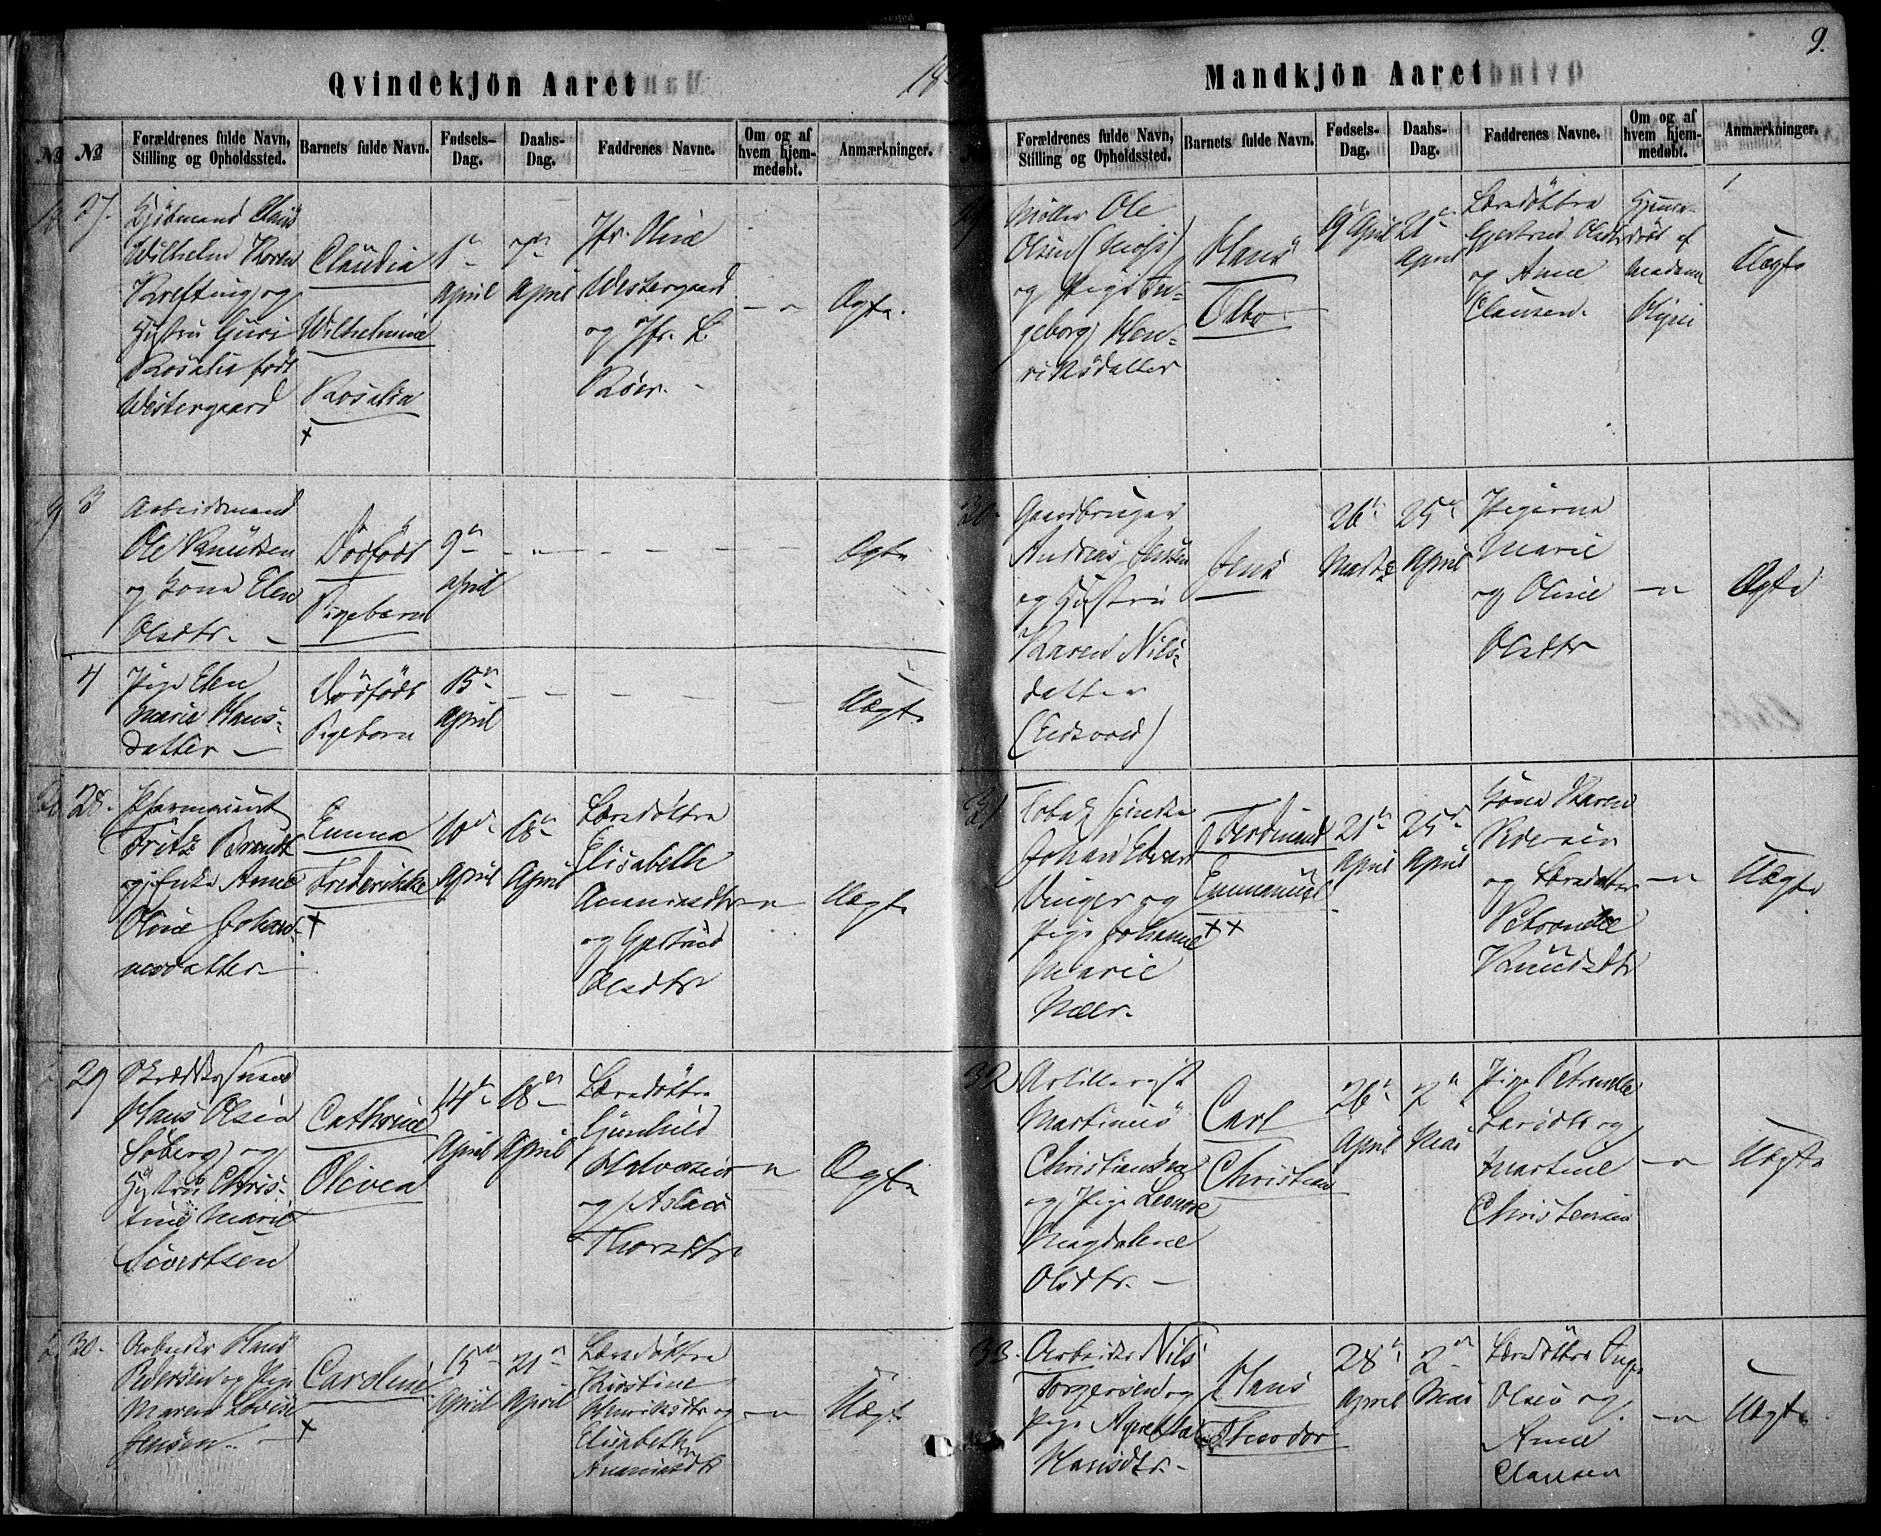 Qvindekjön Aaret 18
No
No
Forældrenes fulde Navn,
Stilling og Opholdssted.
Barnets fulde Navn.
Fødsels-
Dag.
Daabs-
Dag.
Faddrenes Navne.
Om og af
hvem hjem-
medøbt.
Anmærkninger.
27.
Kjöbmand Claus
Wilhelm Koren
Krefting og
Hustru Guri
Rosalie født
Westergaard
Claudia
Wilhelmine
Rosalia
+
April
April
Jfr. Oline
Westergaard
og Jfr. L.
— " —
Ægte.
3
Arbeidsmand
Ole Knudsen
og Kone Elen
Olsdtr. —
Dödfödt
Pigebarn
9de
April
Ægte
4
Pige Elen
Marie Hans-
datter —
Dödfödt
Pigebarn
15de
April
Uægte
28.
Pharmaceut
Fritz Brandt
og Enke Anne
Oline Johan-
nesdatter
Emma
Frederikke
+
10de
April
18de
April
Læredöttre
Elisabeth
og Gjertrud
Olsdtr
Uægte
29
Hans Olsen
Soberg og
Hustru Chris-
tine Marie
Sivertsen
Cathrine
Olivea
14de
April
18de
April
Læredöttre
Gunhild
Halvorsen
og Aslaug
Thorsdtr
Ægte
30.
Arbeider Hans
Pedersen og Pige
Maren Lovise
Jensen. —
Caroline
+
15de
April
21de
April
Læredöttre
Kirstine
Henriksdtr og
Elisabeth
Uægte
Mandkjön Aaret
9.
Forældrenes fulde Navn,
Stilling og Opholdssted.
Barnets fulde Navn.
Fødsels-
Dag.
Daabs-
Dag.
Faddrenes Navne.
Om og af
hvem hjem-
medøbt.
Anmærkninger.
Möller Ole
Olsen (Moss)
og Pige In-
geborg Hen-
riksdatter
Hans
April
21de
April
Læredöttre
Gjertrud Olsdtr
og Anne
Clausen.
Hjemme-
döbt af
Madam
Uægte
30.
Gaardbruger
Andreas Jensen
og Hustru
Karen Nils-
datter
(Eidsvold)
Jens
26de
Marts
25de
April
Pigerne
Marie
og Oline
Olsdtr
Ægte
31
Johan Edvard
Vinger og
Pige Johanne
Marie
Ferdinand
Emmanuel
++
21de
April
25de
April
Kone Karen
Pedersen
og Læredatter
Petronelle
Knudsdtr
Uægte
32
Artillerist
Martinius
Christiansen
og Pige Leonore
Magdalene
Olsdtr. —
Carl
Christian
26de
April
2de
Mai
Pige Petronelle
Larsdtr og
Martine
Christensen
Uægte
33.
Arbeider Nils
Torgersen og
Pige Agnethe
Hansdtr. -
Hans
Theodor
28de
April
2den
Mai
Læredöttre Inge
Olsen og
Anne
Clausen
Uægte